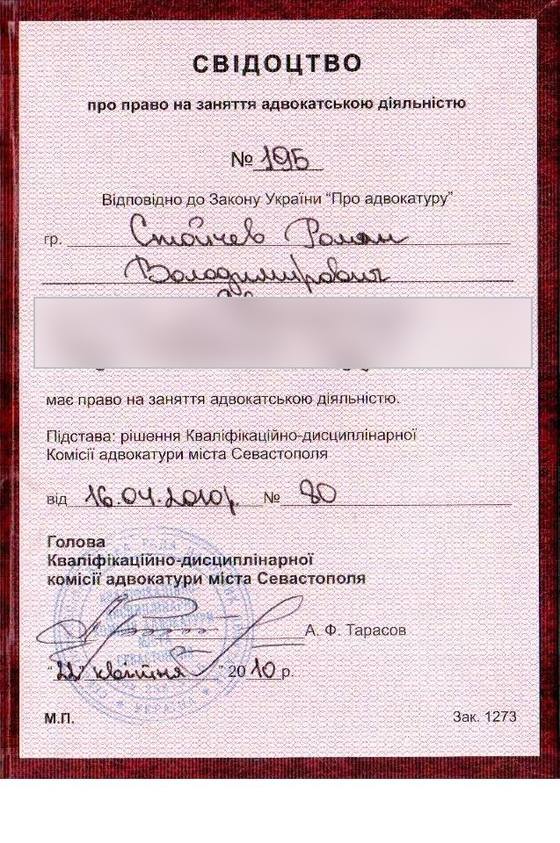 СВІДОЦТВО
про право на заняття адвокатською діяльністю
№ 195
Відповідно до Закону України "Про адвокатуру"
гр. Стойчев Роман
Володимирович
має право на заняття адвокатською діяльністю.
Підстава: рішення Кваліфікаційно-дисциплінарної
Комісії адвокатури міста Севастополя
від 16.04.2010р. № 80
Голова
Кваліфікаційно-дисциплінарної
комісії адвокатури міста Севастополя
А. Ф. Тарасов
"22" квітня 2010р.
М.П.
Зак. 1273